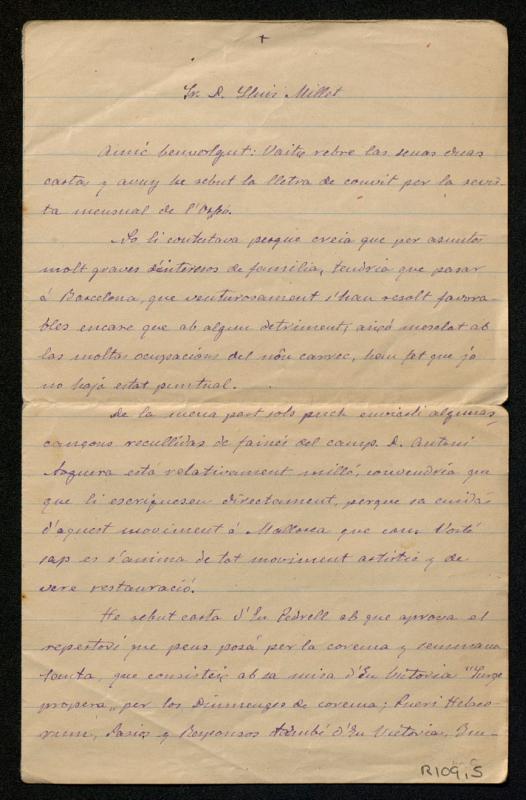 +
Sr. D. Lluis Millet
Amic benvolgut: Vaitx rebre las seuas duas
cartas y avuy he rebut la lletra de convit per la revis-
ta mensual de l'Orfeó.
No li contestava perque creia que per asuntos
molt graves d'interesos de familia, tendria que pasar
á Barcelona, que venturosament s'han resolt favora-
bles encare que ab algun detriment; aixó mesclat ab
las moltas ocupacions del nôu carrec, han fet que jo
no hajá estat puntual.
De la meua part sols puch enviarli algunas
cançons recullidas de feines del camp. D. Antoni
Noguera está relativament milló, convendria que
que li escriguesen directament, perque sa cuidás
d'aquest moviment á Mallorca que com Vosté
sap es s'ánima de tot moviment artistic y de
vere restauració.
He rebut carta d'En Pedrell ab que aprova el
repertori que pens posá per la corema y semmana
santa, que consisteix ab sa misa d'En Victoria "Surge
propera" per los Diumenges de corema; Pueri Hebreo-
rum, Pasios y Responsos també d'En Victoria, Im-
R109,5